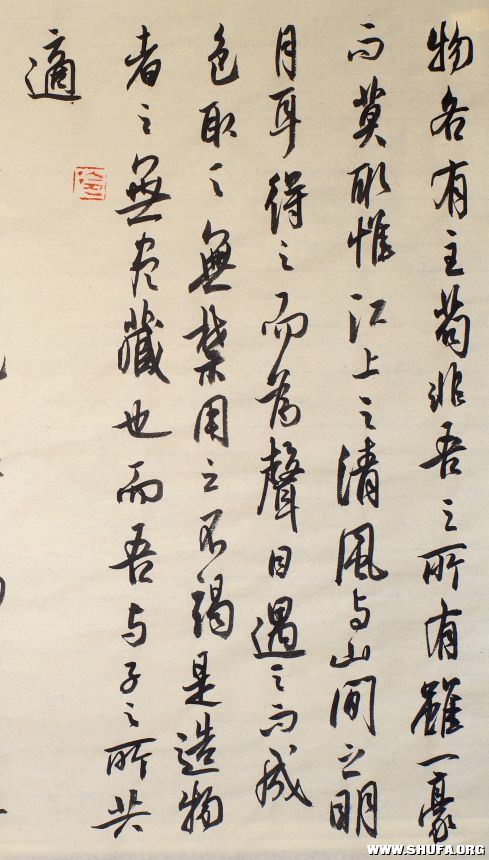 物各有主苟非吾之所有雖一豪
而莫取惟江上之清風与山間之明
月耳得之而為聲目遇之而成
色取之無禁用之不竭是造物
者之無尽藏也而吾与子之所共
適
WWW.SHUFA.ORG